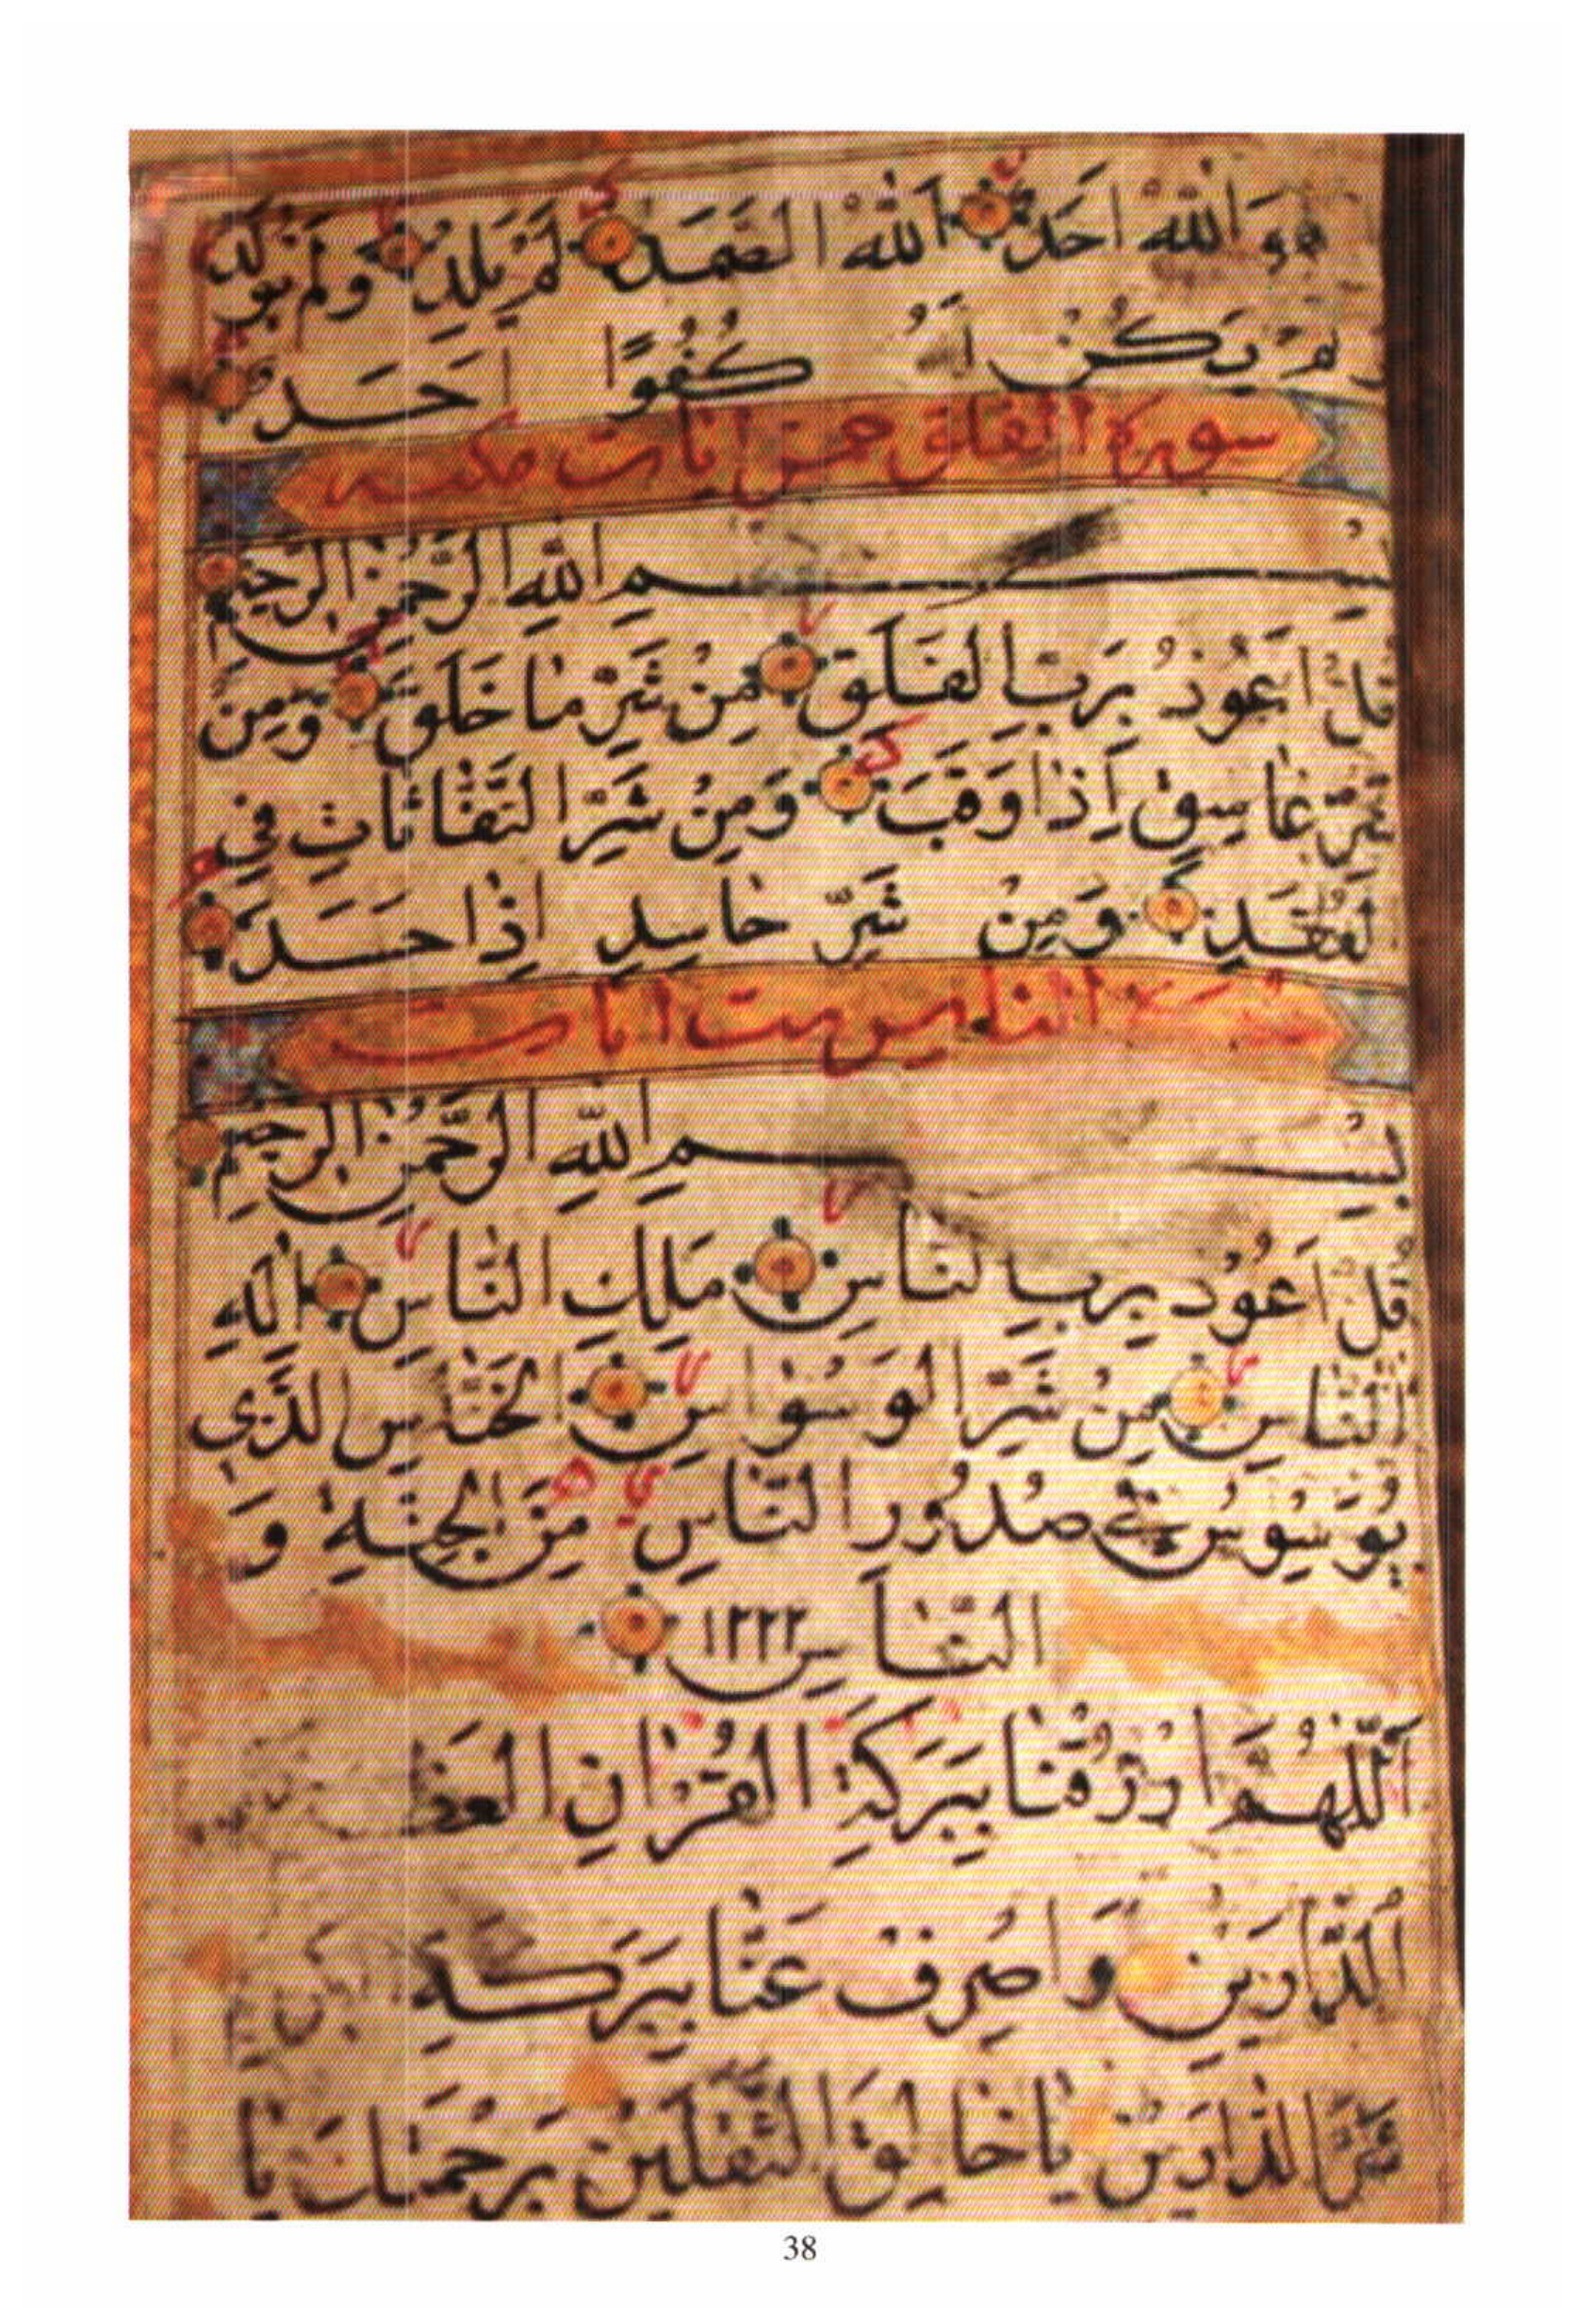 هُوَ اللّٰهُ اَحَدٌ اَللّٰهُ الصَّمَدُ لَمْ يَلِدْ وَلَمْ يُولَدْ
وَلَمْ يَكُنْ لَهُ كُفُوًا اَحَدٌ
سورة الفلق خمس ايات مكية
بِسْمِ اللّٰهِ الرَّحْمٰنِ الرَّحِيمِ
قُلْ اَعُوذُ بِرَبِّ الْفَلَقِ مِنْ شَرِّ مَا خَلَقَ وَمِنْ
شَرِّ غَاسِقٍ اِذَا وَقَبَ وَمِنْ شَرِّ النَّفَّاثَاتِ فِي
الْعُقَدِ وَمِنْ شَرِّ حَاسِدٍ اِذَا حَسَدَ
سورة الناس ست ايات
بِسْمِ اللّٰهِ الرَّحْمٰنِ الرَّحِيمِ
قُلْ اَعُوذُ بِرَبِّ النَّاسِ مَلِكِ النَّاسِ اِلٰهِ
النَّاسِ مِنْ شَرِّ الْوَسْوَاسِ الْخَنَّاسِ الَّذِي
يُوَسْوِسُ فِي صُدُورِ النَّاسِ مِنَ الْجِنَّةِ وَ
النَّاسِ ١٢٢٢
اَللّٰهُمَّ ارْزُقْنَا بِبَرَكَةِ الْقُرْاٰنِ
الدَّارَيْنِ وَاصْرِفْ عَنَّا بِبَرَكَةِ
شَرَّ الدَّارَيْنِ يَا خَالِقَ الثَّقَلَيْنِ بِرَحْمَتِكَ يَا
38